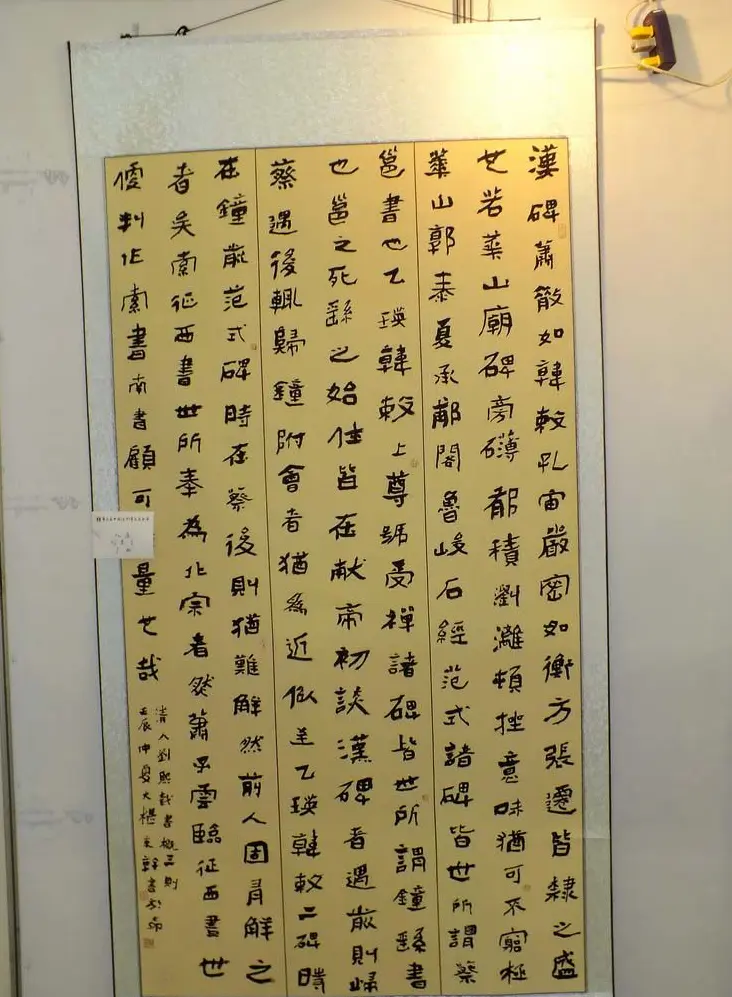 漢碑蕭散如韓敕孔宙嚴密如衡方張遷皆隸之盛
也若華山廟碑旁礴郁積瀏灕頓挫意味猶可不窮極
華山郭泰夏承郙閣魯峻石經范式諸碑皆世所謂蔡
邕書也乙瑛韓敕上尊號受禪諸碑皆世所謂鐘繇書
也邕之死繇之始仕皆在献帝初談漢碑者遇前則歸
蔡遇後輒歸鐘附會者猶為近似至乙瑛韓敕二碑時
在鐘前范式碑時在蔡後則猶難解然前人固有解之
者矣索征西書世所奉為北宗者然蕭子雲臨征西書世
便判作索書南書顧可量也哉
清人劉熙載書概三則
壬辰仲夏大書於